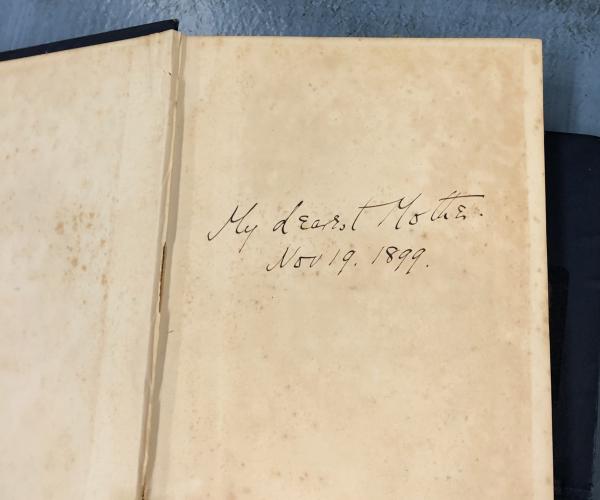 My dearest Mother.
Nov 19. 1899.